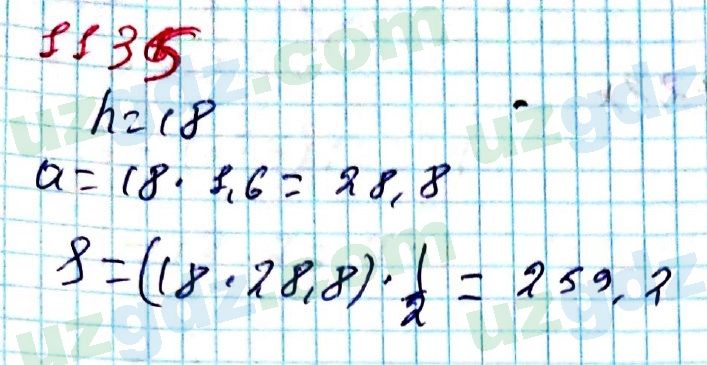 1135
h = 18
a = 18 · 1,6 = 28,8
S = (18 · 28,8) · 1/2 = 259,2
uzgdz.com
uzgdz
uzgdz.com
uzgdz